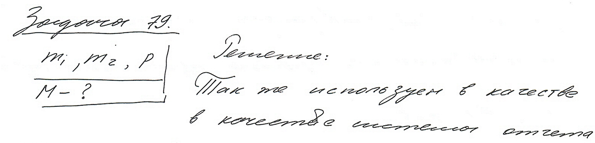 Задача 79.
m₁, m₂, P
M - ?
Решение:
Так же используем в качестве
в качестве системы отчета